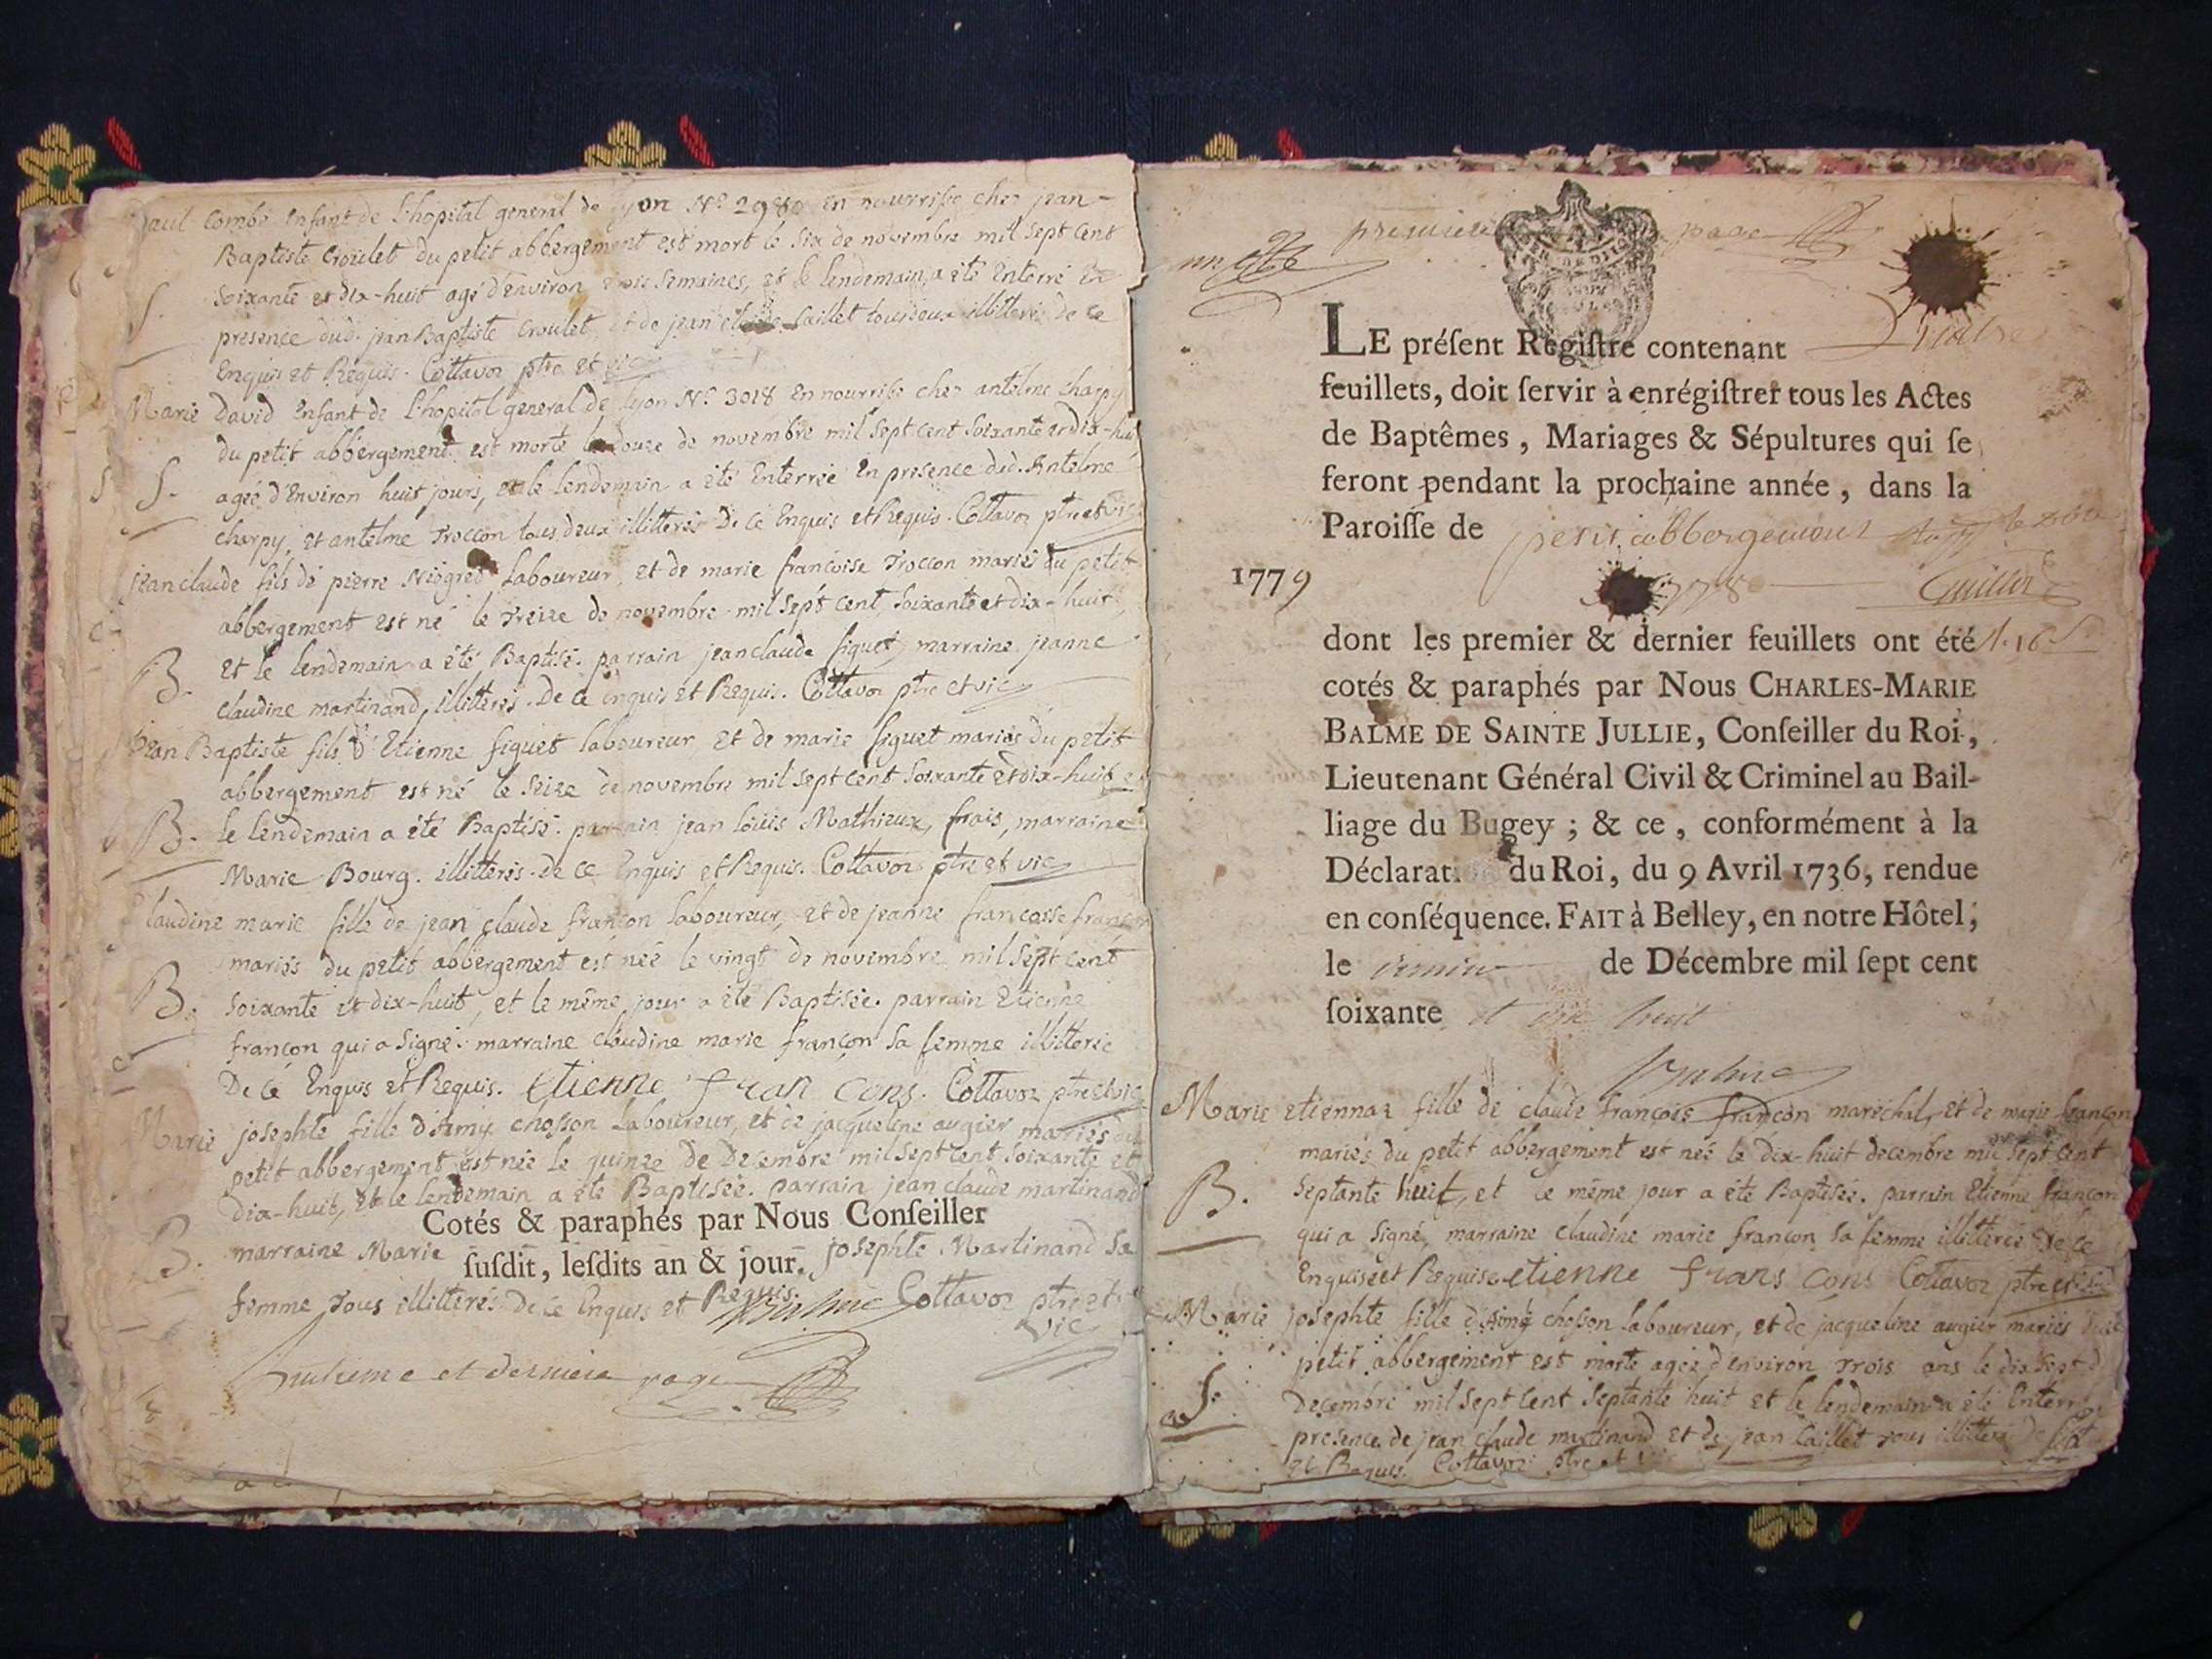 paul combe enfant de L'hopital general de lyon N.o 2980 en nourrisse chez jean-
Baptiste Croulet du petit abbergement est mort le six de novembre mil sept cent
S. soixante et dix-huit agé d'environ trois semaines, et le lendemain a été Enterré En
presence dud. jean Baptiste Croulet et de jean claude Caillet tous deux illitteré de ce
Enquis et Requis. Cottavoz ptre et vic
Marie David Enfant de L'hopital general de lyon N.o 3018 en nourrisse chez antelme charpy
du petit abbergement est morte le douze de novembre mil sept cent soixante et dix-huit
S. agée d'Environ huit jours, et le lendemain a été Enterrée En presence dud. Antelme
charpy, et antelme Troccon tous deux illitterés De ce Enquis et Requis. Cottavoz ptre et vic
jean claude fils de pierre Niogred Laboureur, et de marie françoise Troccon mariés du petit
abbergement est né le Treize de novembre mil sept cent soixante et dix-huit
B. et le lendemain a été Baptisé. parrain jean claude figuet, marraine jeanne
claudine martinand, illitterés. De ce Enquis et Requis. Cottavoz ptre et vic
jean Baptiste fils d'Etienne figuet laboureur et de marie figuet mariés du petit
abbergement est né le seize de novembre mil sept cent soixante et dix-huit et
B. le lendemain a été Baptisé. parrain jean louis Mathieux, frais, marraine
Marie Bourg. illitterés. De ce Enquis et Requis. Cottavoz ptre et vic
Claudine marie fille de jean claude françon laboureur, et de jeanne françoise françon
mariés du petit abbergement est née le vingt de novembre mil sept cent
B. soixante et dix-huit, et le même jour a été Baptisée. parrain Etienne
françon qui a signé. marraine claudine marie françon sa femme illitterée
De ce Enquis et Requis. etienne fran cons. Cottavoz ptre et vic
Marie josephte fille d'Aimé chosson Laboureur, et de jacqueline augier mariés du
petit abbergement est née le quinze de Decembre mil sept cent soixante et
dix-huit, et le lendemain a été Baptisée. parrain jean claude martinand
Cotés & paraphés par Nous Conseiller
B. marraine Marie josephte Martinand sa
susdit, lesdits an & jour.
femme Tous illitterés De ce Enquis et Requis. Balme Cottavoz ptre et
vic
huitieme et derniere page
premiere page
un
LE préſent Regiſtre contenant
feuillets, doit ſervir à enrégiſtrer tous les Actes
de Baptêmes, Mariages & Sépultures qui ſe
feront pendant la prochaine année, dans la
Paroiſſe de petit abbergement
1779
1778
dont les premier & dernier feuillets ont été
cotés & paraphés par Nous CHARLES-MARIE
BALME DE SAINTE JULLIE, Conſeiller du Roi,
Lieutenant Général Civil & Criminel au Bail-
liage du Bugey ; & ce, conformément à la
Déclarat. du Roi, du 9 Avril 1736, rendue
en conſéquence. FAIT à Belley, en notre Hôtel,
le de Décembre mil ſept cent
ſoixante et dix huit
Balme
Marie etiennaz fille de claude françois françon maréchal, et de marie françon
mariés du petit abbergement est née le dix-huit decembre mil sept cent
B. septante huit, et le même jour a été Baptisée. parrain Etienne françon
qui a signé, marraine claudine marie françon sa femme illitterée De ce
Enquise et Requise etienne frans cons Cottavoz ptre et vic
Marie josephte fille d'Aimé chosson laboureur, et de jacqueline augier mariés du
petit abbergement est morte agée d'environ trois ans le dix sept
S. Decembre mil sept cent septante huit et le lendemain a été Enterrée
presence de jean claude martinand et de jean Caillet tous illitteré
et Requis. Cottavoz ptre et